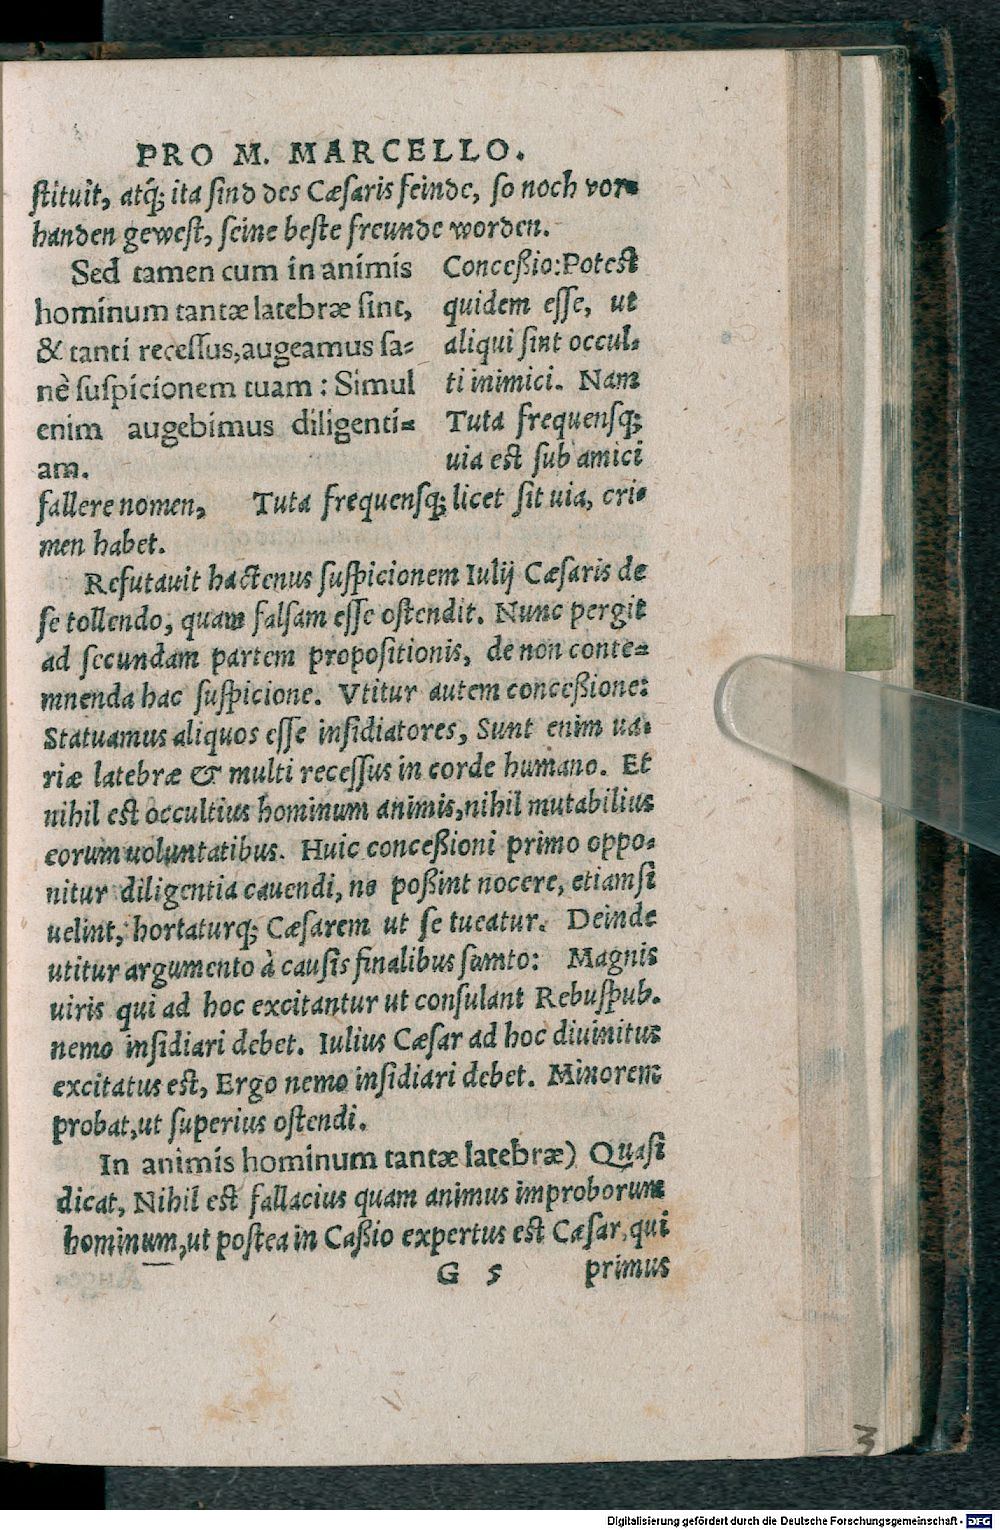 PRO M. MARCELLO.
stituit, atq́; ita sind des Cæsaris feinde, so noch vor=
handen gewest, seine beste freunde worden.
Sed tamen cum in animis
hominum tantæ latebræ sint,
& tanti recessus, augeamus sa=
nè suspicionem tuam: Simul
enim augebimus diligenti=
am.
Conceßio: Potest
quidem esse, ut
aliqui sint occul=
ti inimici. Nam
Tuta frequensq;
uia est sub amici
fallere nomen, Tuta frequensq; licet sit uia, cri=
men habet.
Refutauit hactenus suspicionem Iulij Cæsaris de
se tollendo, quam falsam esse ostendit. Nunc pergit
ad secundam partem propositionis, de non conte=
mnenda hac suspicione. Vtitur autem conceßione:
Statuamus aliquos esse insidiatores, Sunt enim ua=
riæ latebræ & multi recessus in corde humano. Et
nihil est occultius hominum animis, nihil mutabilius
eorum uoluntatibus. Huic conceßioni primo oppo=
nitur diligentia cauendi, ne poßint nocere, etiamsi
uelint, hortaturq; Cæsarem ut se tueatur. Deinde
utitur argumento à causis finalibus sumto: Magnis
uiris qui ad hoc excitantur ut consulant Rebuspub.
nemo insidiari debet. Iulius Cæsar ad hoc diuinitus
excitatus est, Ergo nemo insidiari debet. Minorem
probat, ut superius ostendi.
In animis hominum tantæ latebræ) Quasi
dicat, Nihil est fallacius quam animus improborum
hominum, ut postea in Caßio expertus est Cæsar, qui
G 5 primus
3
Digitalisierung gefördert durch die Deutsche Forschungsgemeinschaft - DFG